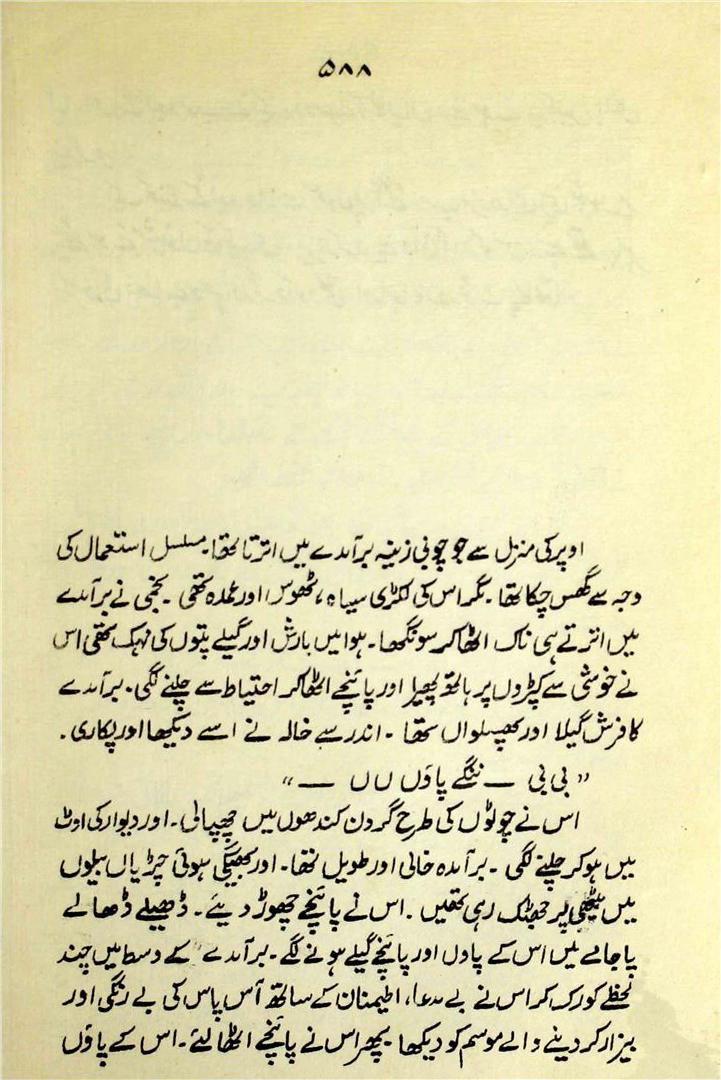 ۵۸۸
اوپر کی منزل سے جو چوبی زینہ برآمدے میں اترتا تھا۔ مسلسل استعمال کی
وجہ سے گھس چکا تھا۔ مگر اس کی لکڑی سیاہ، ٹھوس اور عمدہ تھی۔ نجمی نے برآمدے
میں اترتے ہی ناک اٹھا کر سونگھا۔ ہوا میں بارش اور گیلے پتوں کی مہک تھی اس
نے خوشی سے کپڑوں پر ہاتھ پھیرا اور پائنچے اٹھا کر احتیاط سے چلنے لگی۔ برآمدے
کا فرش گیلا اور پھسلواں تھا۔ اندر سے خالہ نے اسے دیکھا اور پکاری۔
"بی بی — ننگے پاؤں ں ں —"
اس نے چوٹوں کی طرح گردن کندھوں میں چھپالی۔ اور دیوار کی اوٹ
میں ہو کر چلنے لگی۔ برآمدہ خالی اور طویل تھا۔ اور بھیگی ہوئی چڑیاں بیلوں
میں بیٹھی پر جھٹک رہی تھیں۔ اس نے پائنچے چھوڑ دیئے۔ ڈھیلے ڈھالے
پاجامے میں اس کے پاوں اور پائنچے گیلے ہونے لگے۔ برآمدے کے وسط میں چند
لحظے کو رک کر اس نے بے مدعا، اطمینان کے ساتھ آس پاس کی بے رنگی اور
بیزار کر دینے والے موسم کو دیکھا۔ پھر اس نے پائنچے اٹھا لئے۔ اس کے پاؤں